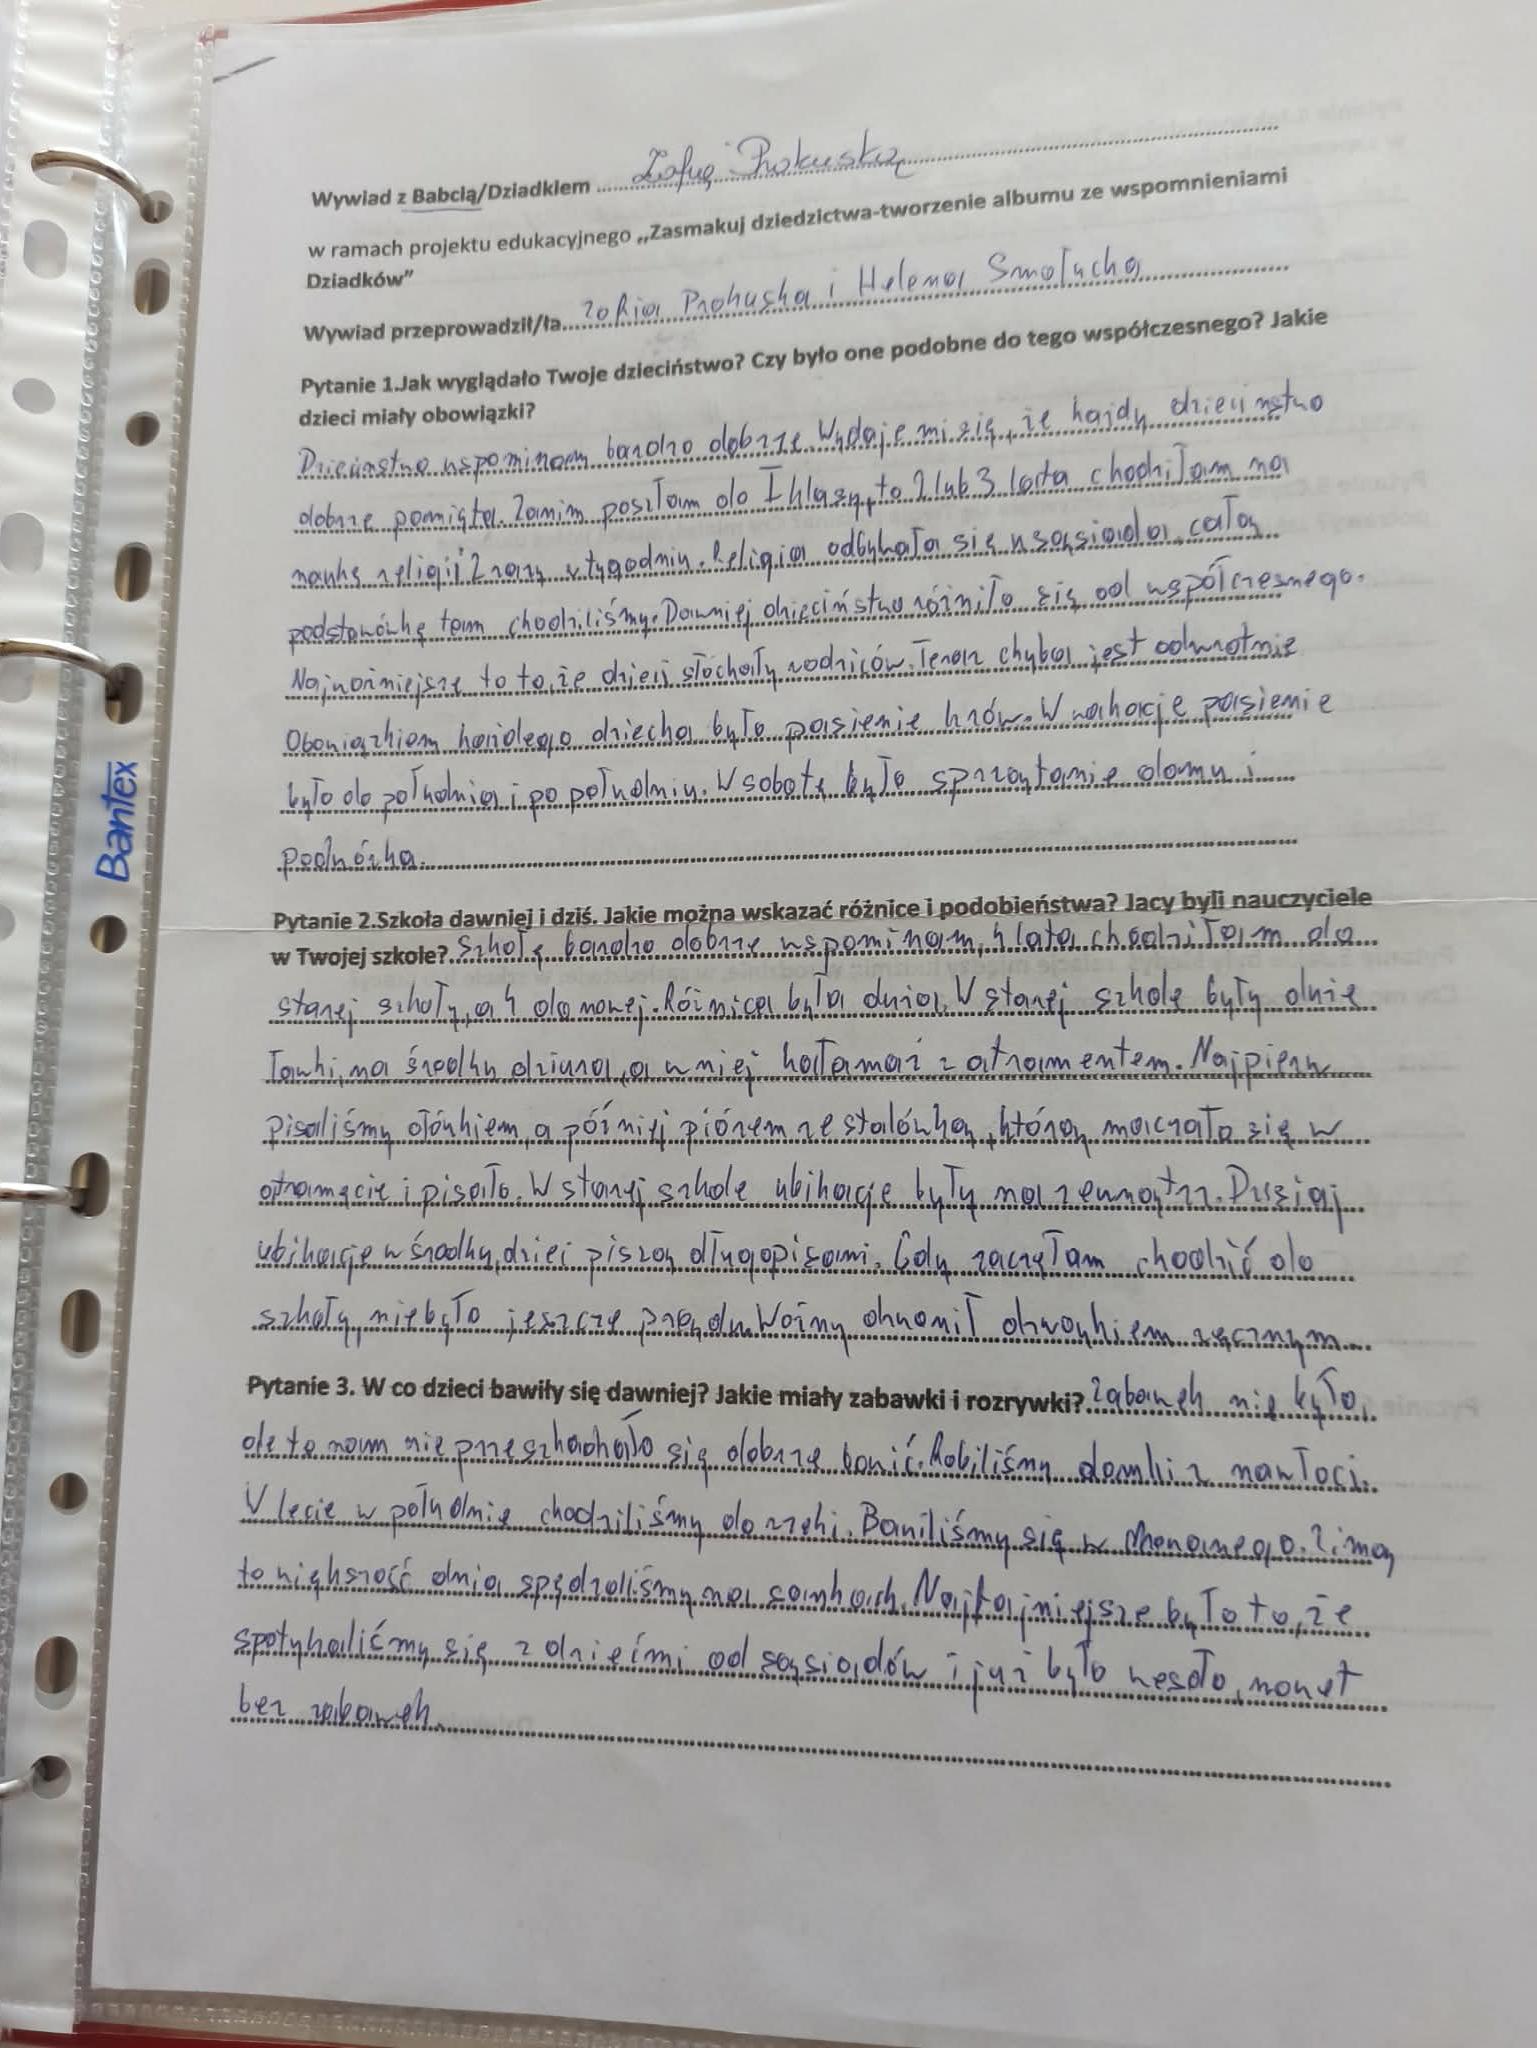 Wywiad z Babcią/Dziadkiem Zofią Prokuską
w ramach projektu edukacyjnego „Zasmakuj dziedzictwa-tworzenie albumu ze wspomnieniami
Dziadków"
Wywiad przeprowadził/ła Zofia Prokuska i Helena Smołucha
Pytanie 1.Jak wyglądało Twoje dzieciństwo? Czy było one podobne do tego współczesnego? Jakie
dzieci miały obowiązki?
Dzieciństwo wspominam bardzo dobrze. Wydaje mi się, że każdy dzieciństwo
dobrze pamięta. Zanim poszłam do I klasy, to 2 lub 3 lata chodziłam na
naukę religii 2 razy w tygodniu. Religia odbywała się u sąsiada, całą
podstawówkę tam chodziliśmy. Dawniej dzieciństwo różniło się od współczesnego.
Najważniejsze to to, że dzieci słóchały rodziców. Teraz chyba jest odwrotnie
Obowiązkiem każdego dziecka było pasienie krów. W wakacje pasienie
było do południa i po południu. W sobotę było sprzątanie domu i
podwórka.
Pytanie 2.Szkoła dawniej i dziś. Jakie można wskazać różnice i podobieństwa? Jacy byli nauczyciele
w Twojej szkole? Szkołę bardzo dobrze wspominam, 4 lata chodziłam do
starej szkoły, a 4 do nowej. Różnica była duża. W starej szkole były duże
ławki, na środku dziura, a w niej kałamaż z atramentem. Najpierw
pisaliśmy ołówkiem, a później piórem ze stalówką, którą maczało się w
atramęcie i pisało. W starej szkole ubikacje były na zewnątrz. Dzisiaj
ubikacje w środku, dzieci piszą długopisami. Gdy zaczęłam chodzić do
szkoły, niebyło jeszcze prądu. Woźny dzwonił dzwonkiem ręcznym
Pytanie 3. W co dzieci bawiły się dawniej? Jakie miały zabawki i rozrywki? Zabawek nie było,
ale to nam nie przeszkadzało się dobrze bawić. Robiliśmy domki z nawłoci.
W lecie w południe chodziliśmy do rzeki. Bawiliśmy się w chowanego. Zimą
to większość dnia spędzaliśmy na sankach. Najfajniejsze było to, że
spotykaliśmy się z dziećmi od sąsiadów i już było wesoło, nawet
bez zabawek.
Bantex